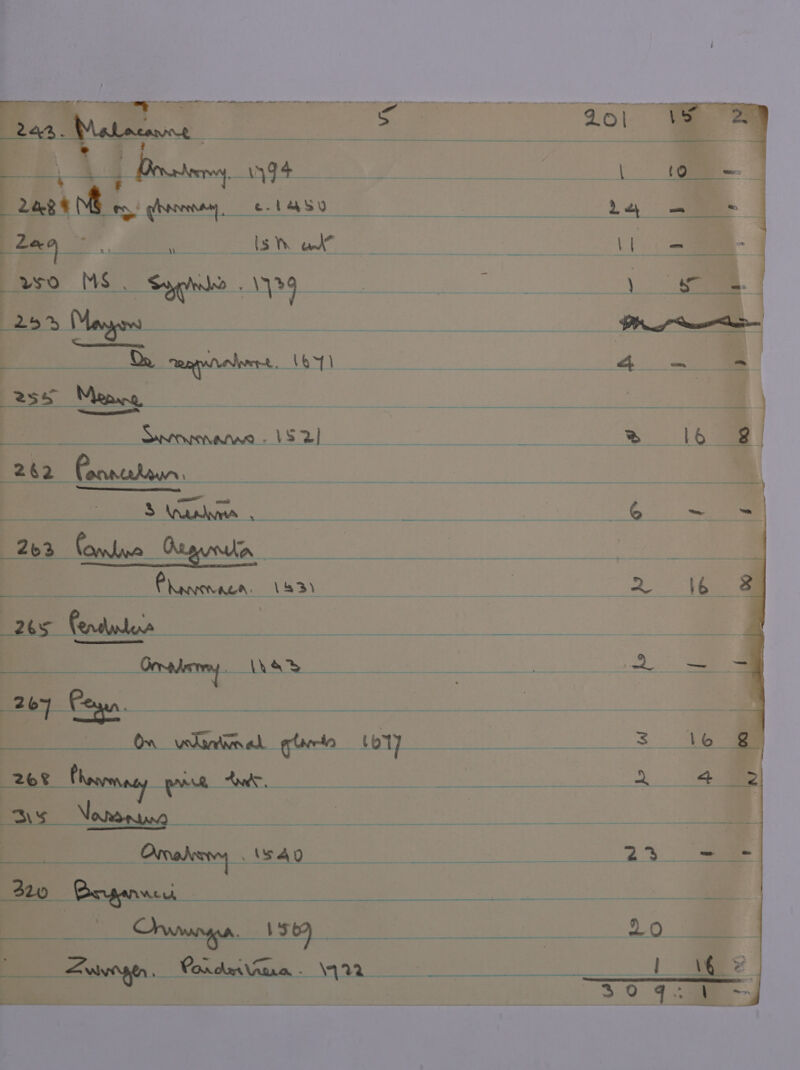 5 201 15 2
243. Malacarne
Anatomy. 1794 1 10 -
248 MS on pharmacy. c.1450 24 - -
249 " " 15th cent 11 - -
250 MS. Syphilis. 1739 1 5 -
253 Mayow
De respiratione. 1671 4 - -
255 Mesue
Summario. 1521 16 8
262 Paracelsus.
3 treatises. 6 - -
263 Paulus Aegineta
Pharmaca. 1531 2 16 8
265 Perdulcis
Anatomy. 2 - -
267 Peyer.
On intestinal glands 1677 3 16 8
268 Pharmacy price list. 2 4 2
315 Vassaeus
Anatomy. 1540 23 - -
320 Borgarucci
Chirurgia. 1569 20
Zwinger. Paidoiatreia. 1722 1 16 8
309 : 1 -